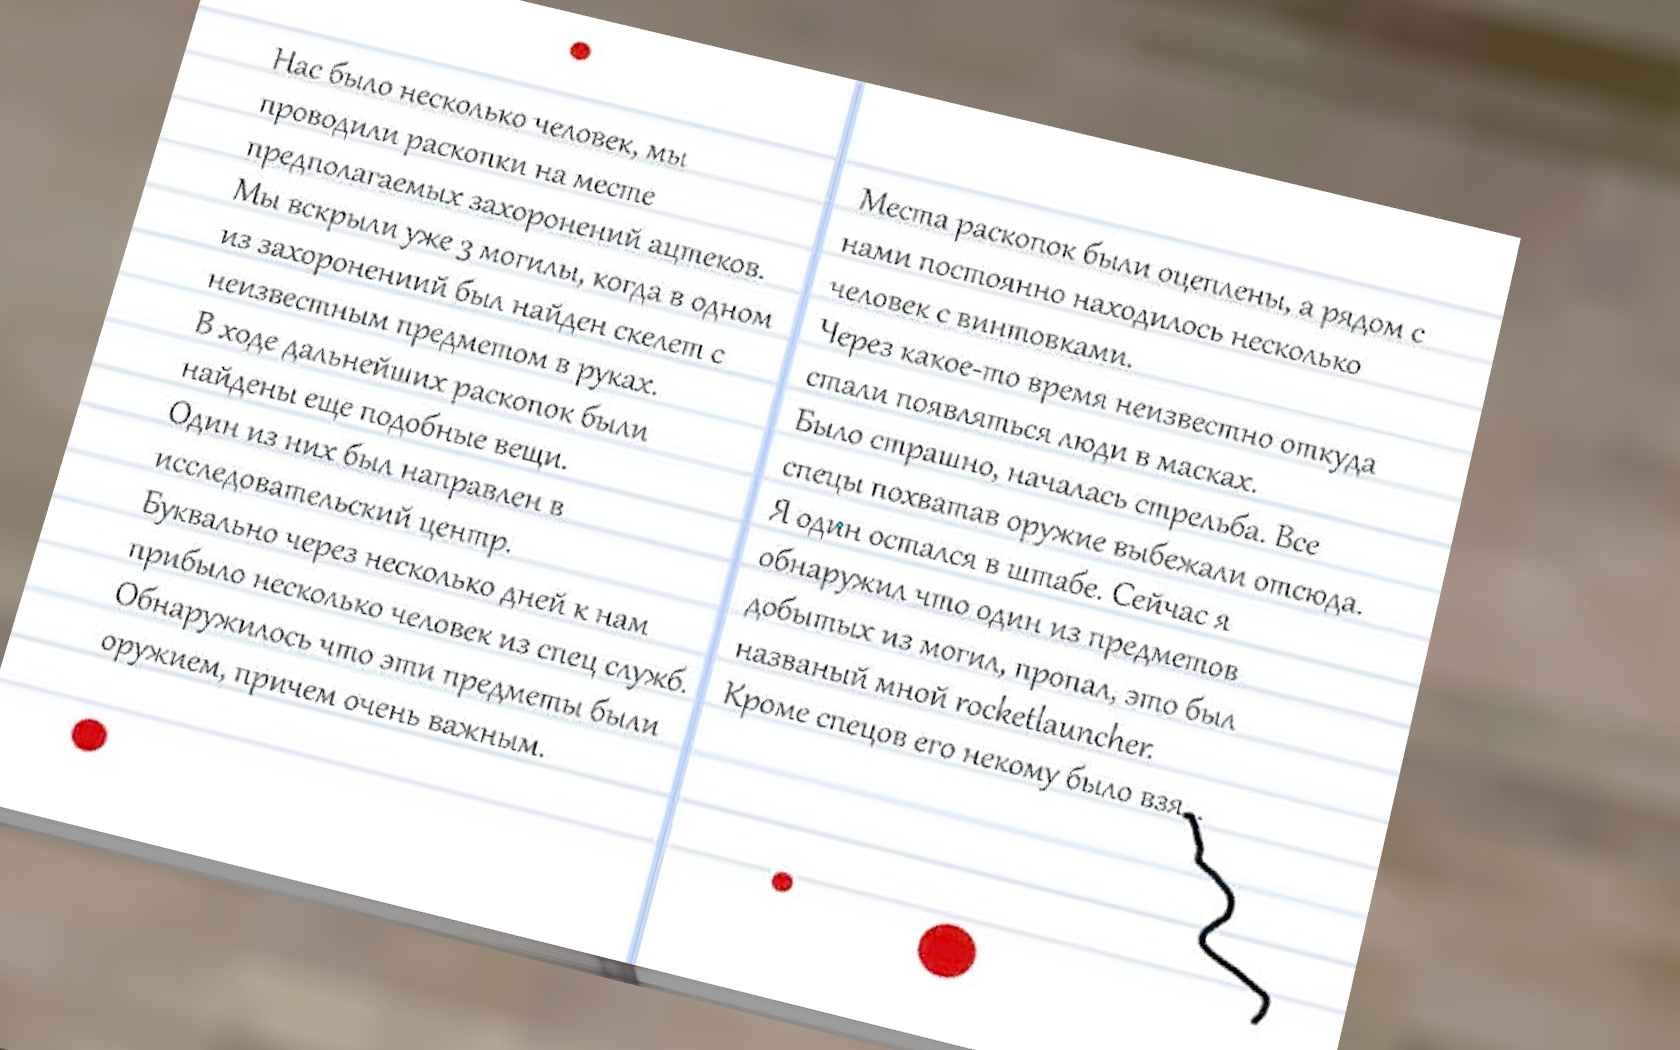 Нас было несколько человек, мы
проводили раскопки на месте
предполагаемых захоронений ацтеков.
Мы вскрыли уже 3 могилы, когда в одном
из захоронениий был найден скелет с
неизвестным предметом в руках.
В ходе дальнейших раскопок были
найдены еще подобные вещи.
Один из них был направлен в
исследовательский центр.
Буквально через несколько дней к нам
прибыло несколько человек из спец служб.
Обнаружилось что эти предметы были
оружием, причем очень важным.
Места раскопок были оцеплены, а рядом с
нами постоянно находилось несколько
человек с винтовками.
Через какое-то время неизвестно откуда
стали появляться люди в масках.
Было страшно, началась стрельба. Все
спецы похватав оружие выбежали отсюда.
Я один остался в штабе. Сейчас я
обнаружил что один из предметов
добытых из могил, пропал, это был
названый мной rocketlauncher.
Кроме спецов его некому было взя...